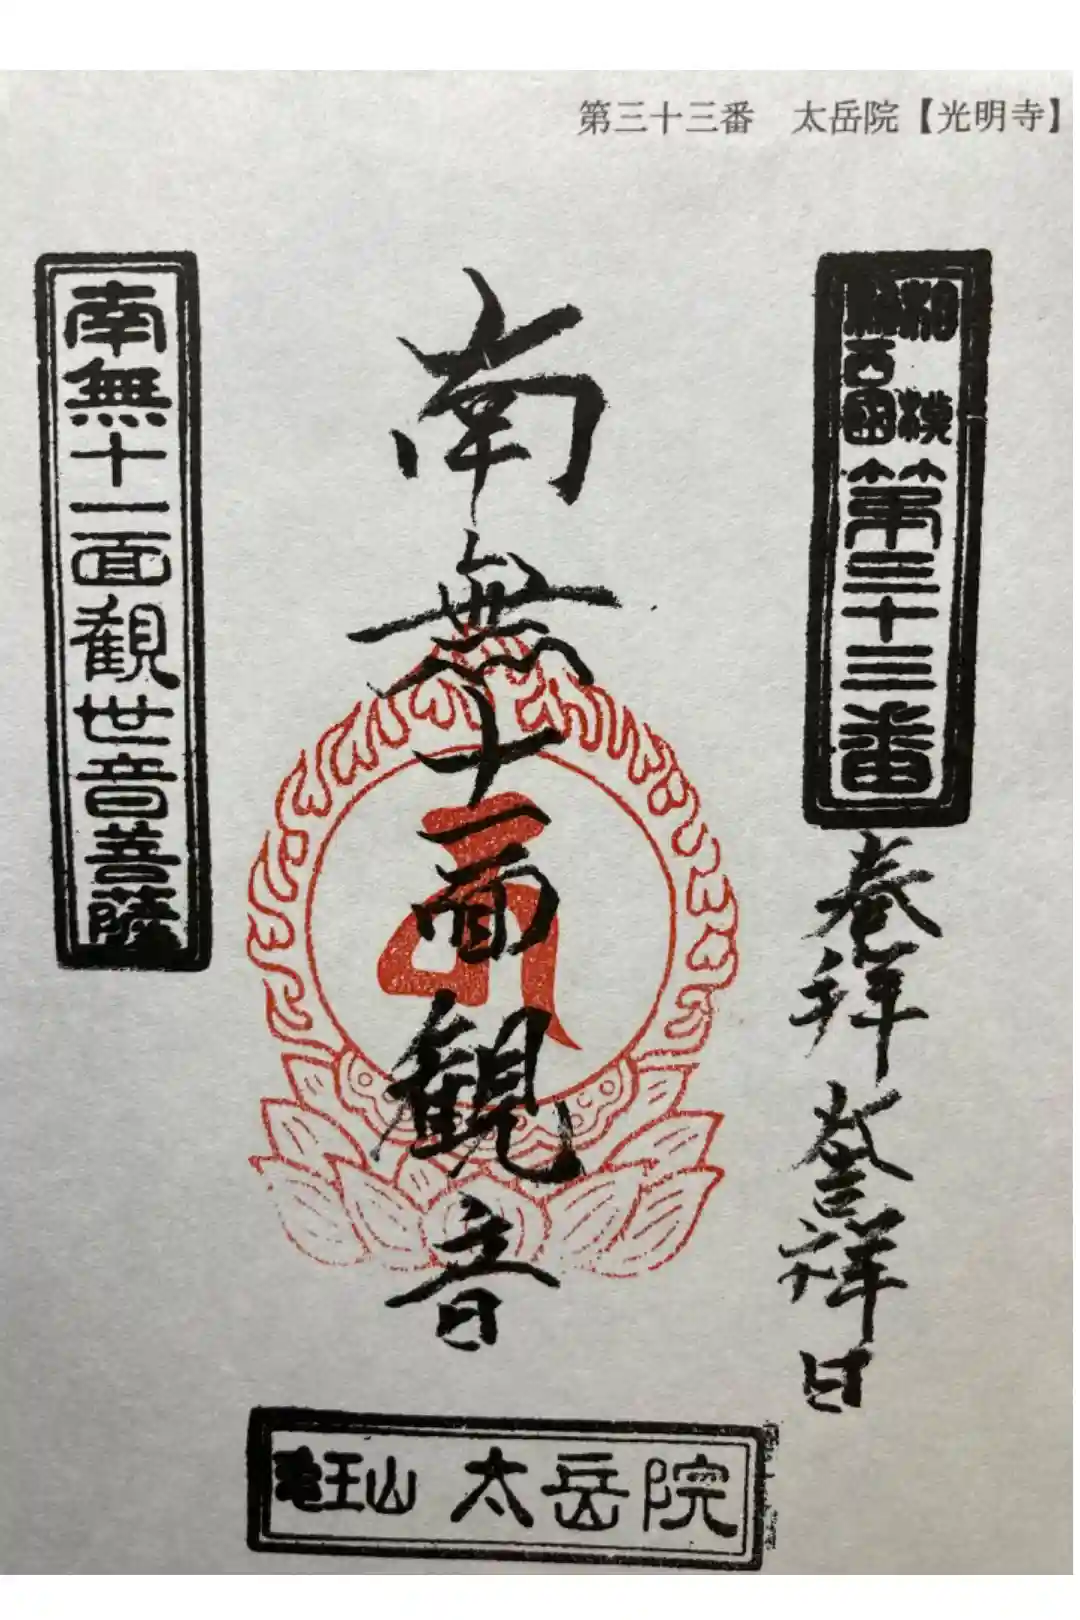 第三十三番　太岳院【光明寺】
相模
新西国
第三十三番
奉拝
登拝日
南無十一面観音
南無十一面観世音菩薩
竜王山 太岳院